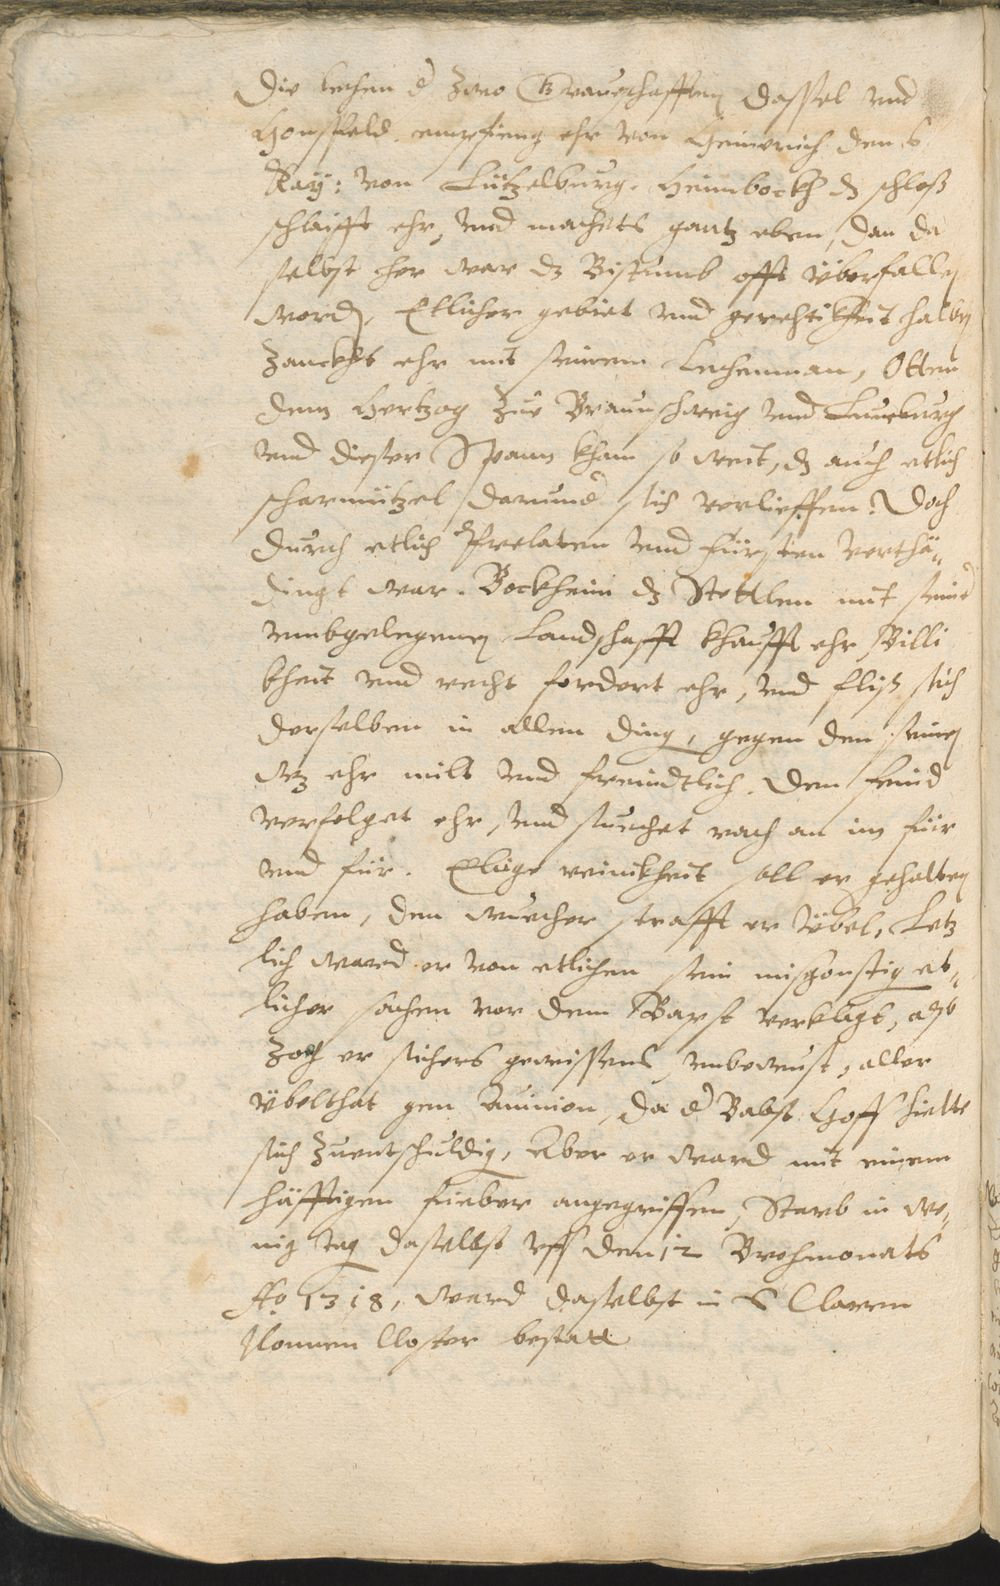 Die lechen d zwo Grauschafften Dassel vnd
Honsfeld. empfieng ehr von Heinrich den 6
Kay: von Lützelburg. Heimbockh dz schloß
schleifft ehr, vnd machets gantz eben, dan da
selbst her war dz Bistumb offt überfallen
word. Etlicher gebiet vnd gerechtikheit halben
Zanckhts ehr mit seinem Lechenman, Otten
dem Hertzog Zue Braunschweig vnd Lunenburg
vnd dieser Spann kham so weit, dz auch etlich
scharmützel darumb sich verlieffen. Doch
durch etlich Prelaten vnd fürsten verthä-
dingt war. Bockheim dz Stettlen mit seiner
vmbgelegenen Landschafft khaufft ehr Billi
kheit vnd recht fordert ehr, vnd fliß sich
derselben in allen ding, gegen den seinen
wz ehr milt vnd freundtlich. Den feind
verfolget ehr, vnd suechet rach an im für
vnd für. reinikheit soll er gehalten
haben, den wuecher strafft er übel, Letz
lich ward er von etlichen sein misgönstig et-
licher sachen vor dem Bapst verklagt,
Zog er sichers gewissens vnbewust, aller
übelthat gen Auinion, da d Babst Hoff hielte
sich Zuentschuldig, Aber er ward mit einem
häfftigen fieber angegriffen, Starb in we-
nig tag daselbst vff den 12 Brochmonats
Ao 1318, ward daselbst in S Claren
Nonnen Closter bestatt